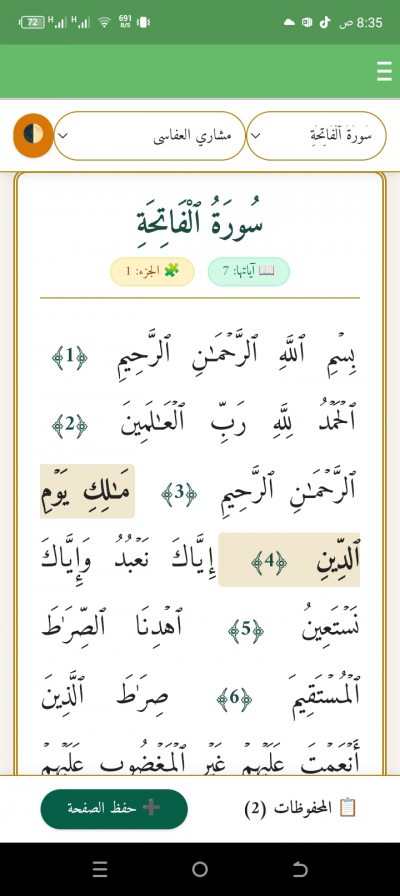 72 H H 691 B/S 8:35 ص
سُورَةُ ٱلْفَاتِحَةِ مشاري العفاسي
سُورَةُ ٱلْفَاتِحَةِ
📖 آياتها: 7 🧩 الجزء: 1
بِسْمِ ٱللَّهِ ٱلرَّحْمَـٰنِ ٱلرَّحِيمِ ﴿1﴾
ٱلْحَمْدُ لِلَّهِ رَبِّ ٱلْعَـٰلَمِينَ ﴿2﴾
ٱلرَّحْمَـٰنِ ٱلرَّحِيمِ ﴿3﴾ مَـٰلِكِ يَوْمِ
ٱلدِّينِ ﴿4﴾ إِيَّاكَ نَعْبُدُ وَإِيَّاكَ
نَسْتَعِينُ ﴿5﴾ ٱهْدِنَا ٱلصِّرَٰطَ
ٱلْمُسْتَقِيمَ ﴿6﴾ صِرَٰطَ ٱلَّذِينَ
أَنْعَمْتَ عَلَيْهِمْ غَيْرِ ٱلْمَغْضُوبِ عَلَيْهِمْ
📋 المحفوظات (2) ➕ حفظ الصفحة